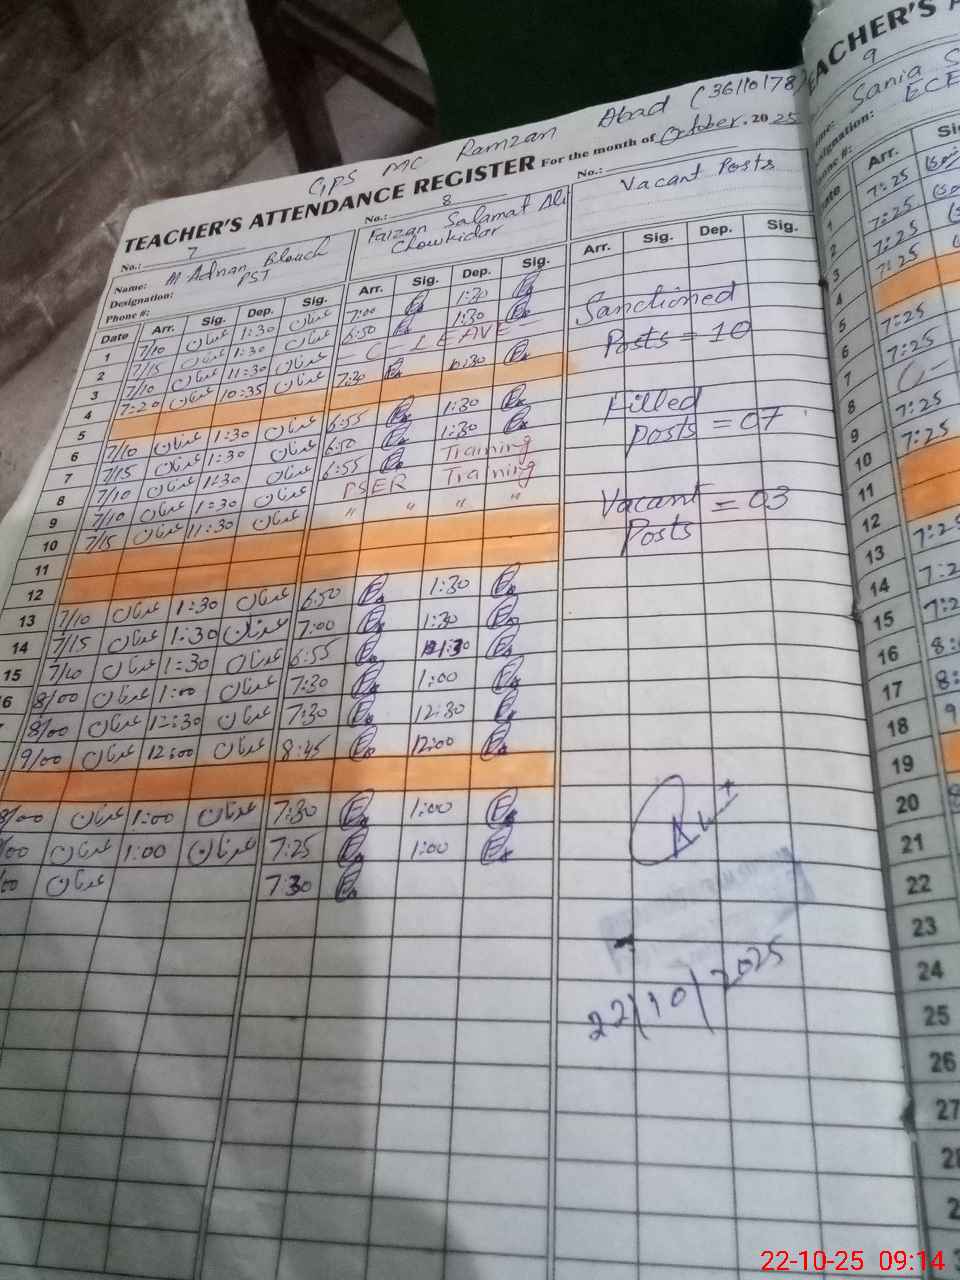 GPS MC Ramzan Abad (36110178)
TEACHER'S ATTENDANCE REGISTER For the month of October. 2025
No.: 7
Name: M Adnan Blouch
Designation: PST
Phone #:
No.: 8
Faizan Salamat Ali
Chowkidar
No.:
Vacant Posts
Date Arr. Sig. Dep. Sig. Arr. Sig. Dep. Sig. Arr. Sig. Dep. Sig.
1 7/10 عدنان 1:30 عدنان 7:00 1:30
2 7/15 عدنان 1:30 عدنان 6:50 1:30
3 7/10 عدنان 11:30 عدنان - C - LEAVE -
4 7:20 عدنان 10:35 عدنان 7:30
5
6 7/10 عدنان 1:30 عدنان 6:55 1:30
7 7/15 عدنان 1:30 عدنان 6:50 1:30
8 7/10 عدنان 1:30 عدنان 6:55 Training
9 7/10 عدنان 1:30 عدنان PSER Training
10 7/15 عدنان 11:30 عدنان " " " "
11
12
13 7/10 عدنان 1:30 عدنان 6:50 1:30
14 7/15 عدنان 1:30 عدنان 7:00 1:30
15 7/10 عدنان 1:30 عدنان 6:55
16 8/00 عدنان 1:00 عدنان 7:30 1:00
8/00 عدنان 12:30 عدنان 7:30 12:30
9/00 عدنان 12:00 عدنان 8:45 12:00
8/00 عدنان 1:00 عدنان 7:30 1:00
/00 عدنان 1:00 عدنان 7:25 1:00
/00 عدنان 7:30
Sanctioned
Posts = 10
Filled
Posts = 07
Vacant = 03
Posts
22/10/2025
TEACHER'S
9
Name: Sania
Designation: ECE
Phone #:
Date Arr. Sig.
1 7:25
2 7:25
3 7:25
4 7:25
5
6 7:25
7 7:25
8 C-
9 7:25
10 7:25
11
12
13 7:25
14
15
16
17
18
19
20
21
22
23
24
25
26
27
22-10-25 09:14